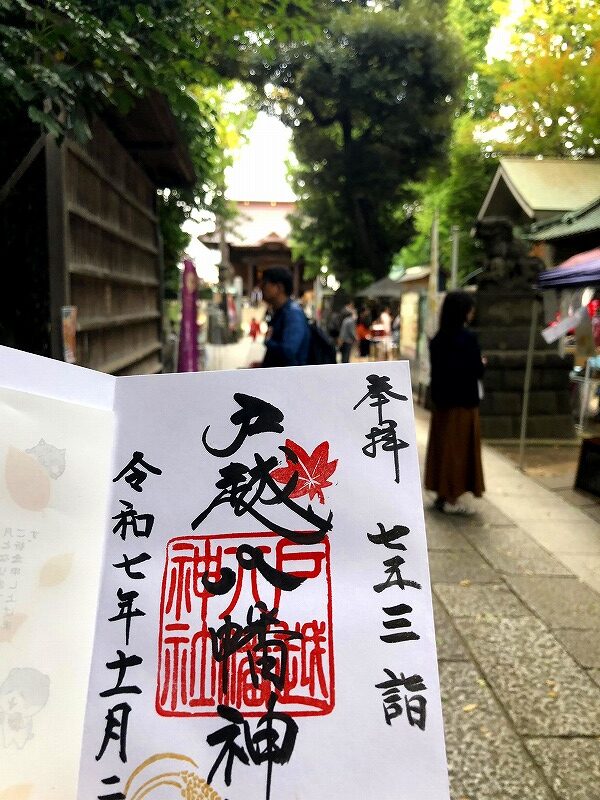 奉拝 七五三詣
戸越八幡神
戸越
八幡
神社
令和七年十一月二